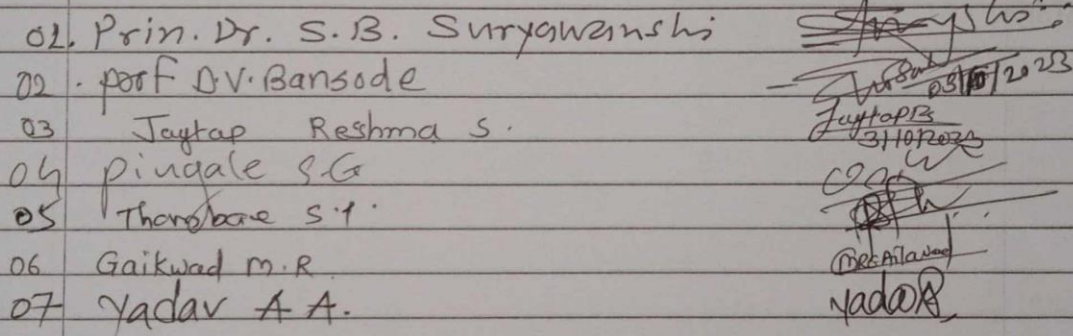 01. Prin. Dr. S. B. Suryawanshi
02. porf D.V. Bansode 03/10/2023
03 Jagtap Reshma S. JagtapRS
3/10/2023
04 Pingale S.G
05 S.
06 Gaikwad M.R
07 Yadav A A. Yada